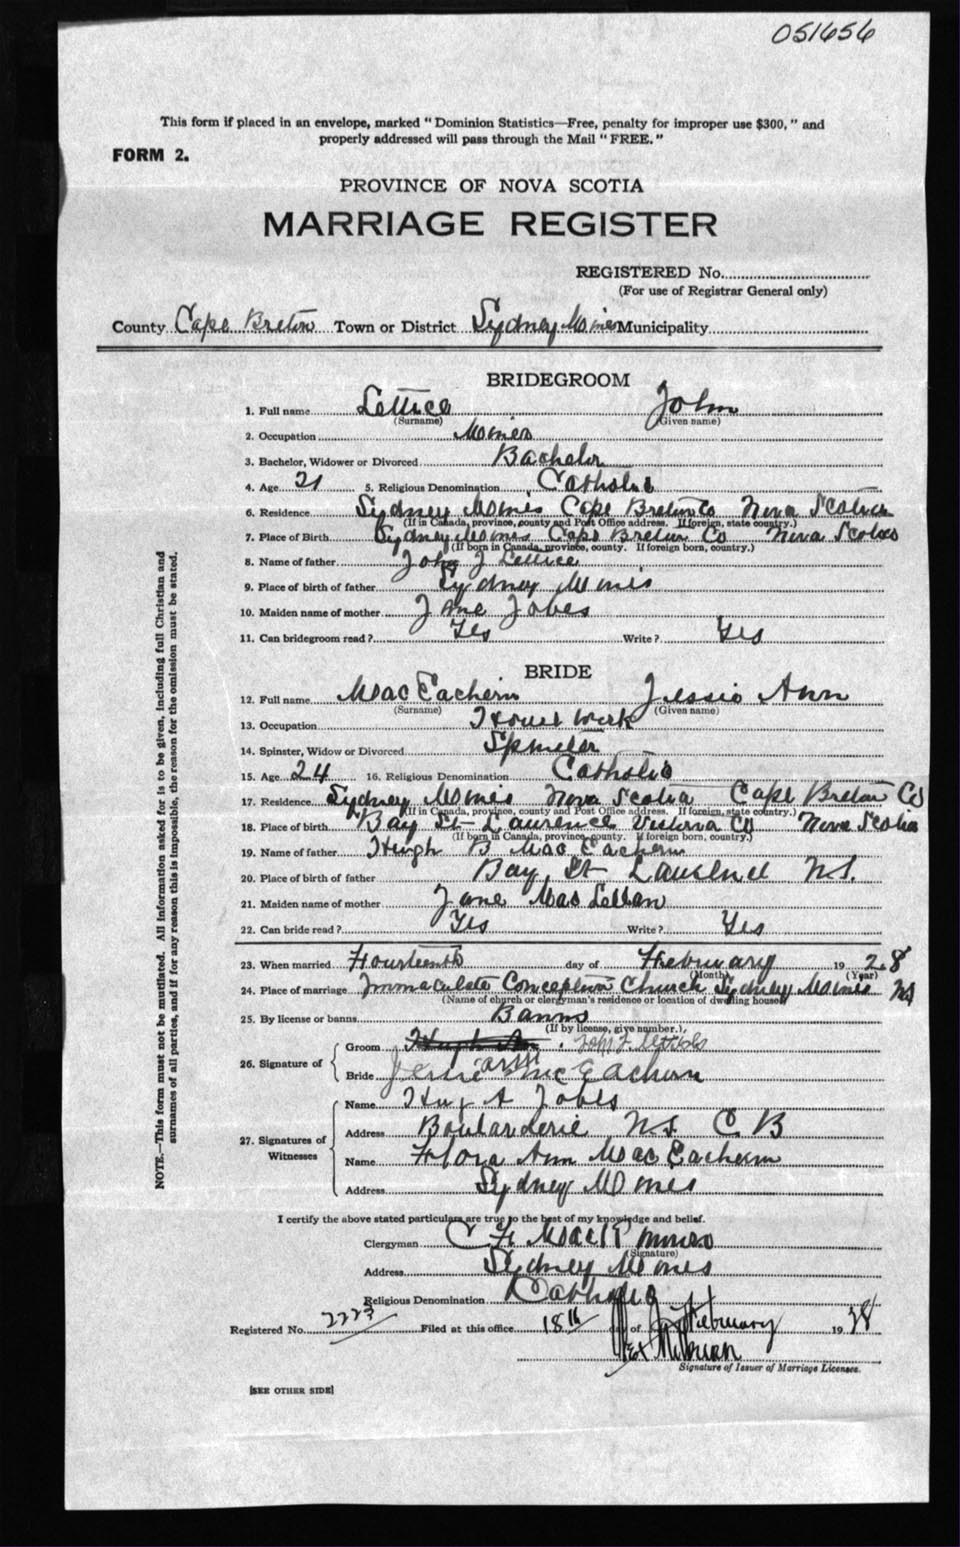 051656
This form if placed in an envelope, marked "Dominion Statistics—Free, penalty for improper use $300," and
properly addressed will pass through the Mail "FREE."
FORM 2.
PROVINCE OF NOVA SCOTIA
MARRIAGE REGISTER
REGISTERED No.
(For use of Registrar General only)
County Cape Breton Town or District Sydney Mines Municipality
BRIDEGROOM
1. Full name Lettice John
(Surname) (Given name)
2. Occupation Miner
3. Bachelor, Widower or Divorced Bachelor
4. Age 21 5. Religious Denomination Catholic
6. Residence Sydney Mines Cape Breton Co Nova Scotia
(If in Canada, province, county and Post Office address. If foreign, state country.)
7. Place of Birth Sydney Mines Cape Breton Co Nova Scotia
(If born in Canada, province, county. If foreign born, country.)
8. Name of father John J Lettice
9. Place of birth of father Sydney Mines
10. Maiden name of mother Jane Jobes
11. Can bridegroom read? Yes Write? Yes
BRIDE
12. Full name MacEachern Jessie Ann
(Surname) (Given name)
13. Occupation House Work
14. Spinster, Widow or Divorced Spinster
15. Age 24 16. Religious Denomination Catholic
17. Residence Sydney Mines Nova Scotia Cape Breton Co
(If in Canada, province, county and Post Office address. If foreign, state country.)
18. Place of birth Bay St Laurence Victoria Co Nova Scotia
(If born in Canada, province, county. If foreign born, country.)
19. Name of father Hugh B MacEachern
20. Place of birth of father Bay St Laurence N.S.
21. Maiden name of mother Jane MacLellan
22. Can bride read? Yes Write? Yes
23. When married Fourteenth day of February 1928
(Month) (Year)
24. Place of marriage Immaculate Conception Church Sydney Mines NS
(Name of church or clergyman's residence or location of dwelling house)
25. By license or banns Banns
(If by license, give number.)
26. Signature of
Groom John J.
Bride Jessie Ann McEachern
27. Signatures of Witnesses
Name A Jobes
Address Boularderie N.S. C B
Name Flora Ann MacEachern
Address Sydney Mines
I certify the above stated particulars are true to the best of my knowledge and belief.
Clergyman C F MacKinnon
(Signature)
Address Sydney Mines
Religious Denomination Catholic
Registered No. 2223 Filed at this office 18th day of February 1928
Signature of Issuer of Marriage Licenses.
[SEE OTHER SIDE]
NOTE.—This form must not be mutilated. All information asked for is to be given, including full Christian and
surnames of all parties, and if for any reason this is impossible, the reason for the omission must be stated.